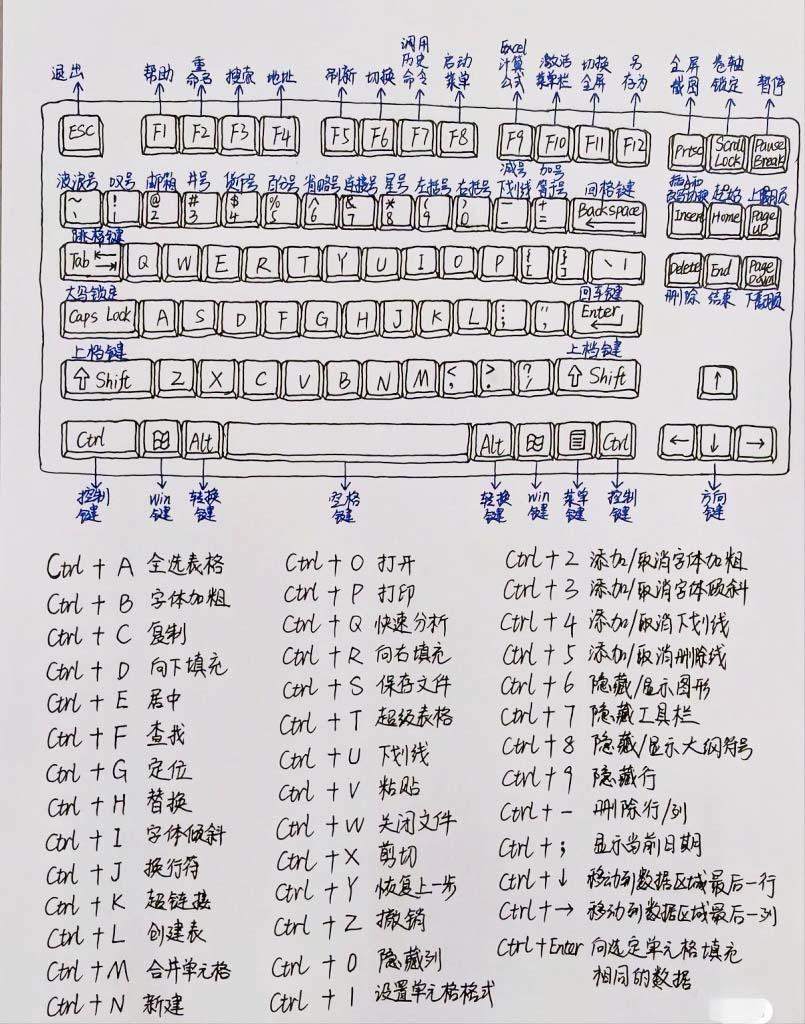 退出 帮助 重命名 搜索 地址 刷新 切换 调用历史命令 启动菜单 Excel计算公式 激活菜单栏 切换全屏 另存为 全屏截图 卷轴锁定 暂停
ESC F1 F2 F3 F4 F5 F6 F7 F8 F9 F10 F11 F12 Prtsc Scroll Lock Pause Break
波浪号 叹号 邮箱 井号 货币号 百分号 省略号 连接号 星号 左括号 右括号 减号下划线 加号等号 回格键 插入和改写切换 起始 上翻页
~ ` ! 1 @ 2 # 3 $ 4 % 5 ^ 6 & 7 * 8 ( 9 ) 0 — - + = Backspace ← Insert Home Page UP
跳格键
Tab Q W E R T Y U I O P { [ } ] \ | Delete End Page Down
大写锁定 回车键 删除 结束 下翻页
Caps Lock A S D F G H J K L : ; " ' Enter ←
上档键 上档键
⇧ Shift Z X C V B N M < , > . ? / ⇧ Shift ↑
Ctrl Alt Alt Ctrl ← ↓ →
控制键 win键 转换键 空格键 转换键 win键 菜单键 控制键 方向键
Ctrl + A 全选表格
Ctrl + B 字体加粗
Ctrl + C 复制
Ctrl + D 向下填充
Ctrl + E 居中
Ctrl + F 查找
Ctrl + G 定位
Ctrl + H 替换
Ctrl + I 字体倾斜
Ctrl + J 换行符
Ctrl + K 超链接
Ctrl + L 创建表
Ctrl + M 合并单元格
Ctrl + N 新建
Ctrl + O 打开
Ctrl + P 打印
Ctrl + Q 快速分析
Ctrl + R 向右填充
Ctrl + S 保存文件
Ctrl + T 超级表格
Ctrl + U 下划线
Ctrl + V 粘贴
Ctrl + W 关闭文件
Ctrl + X 剪切
Ctrl + Y 恢复上一步
Ctrl + Z 撤销
Ctrl + 0 隐藏列
Ctrl + 1 设置单元格格式
Ctrl + 2 添加/取消字体加粗
Ctrl + 3 添加/取消字体倾斜
Ctrl + 4 添加/取消下划线
Ctrl + 5 添加/取消删除线
Ctrl + 6 隐藏/显示图形
Ctrl + 7 隐藏工具栏
Ctrl + 8 隐藏/显示大纲符号
Ctrl + 9 隐藏行
Ctrl + - 删除行/列
Ctrl + ; 显示当前日期
Ctrl + ↓ 移动到数据区域最后一行
Ctrl + → 移动到数据区域最后一列
Ctrl + Enter 向选定单元格填充
相同的数据